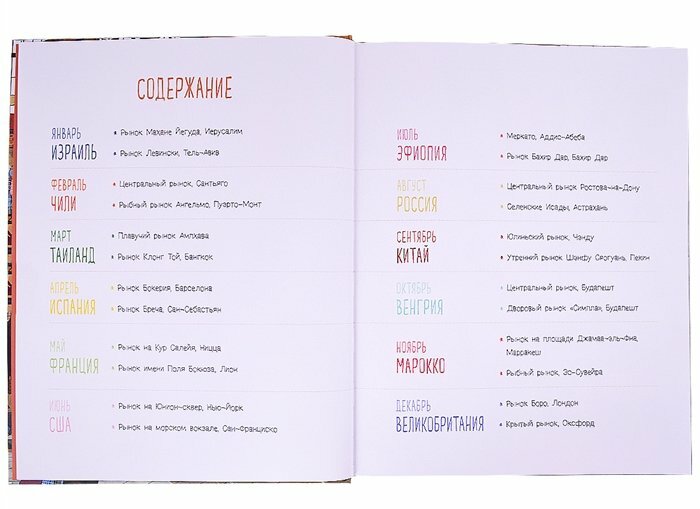 СОДЕРЖАНИЕ
ЯНВАРЬ
ИЗРАИЛЬ
• Рынок Махане Йегуда, Иерусалим
• Рынок Левински, Тель-Авив
ФЕВРАЛЬ
ЧИЛИ
• Центральный рынок, Сантьяго
• Рыбный рынок Ангельмо, Пуэрто-Монт
МАРТ
ТАИЛАНД
• Плавучий рынок Ампхава
• Рынок Клонг Той, Бангкок
АПРЕЛЬ
ИСПАНИЯ
• Рынок Бокерия, Барселона
• Рынок Бреча, Сан-Себастьян
МАЙ
ФРАНЦИЯ
• Рынок на Кур Салейя, Ницца
• Рынок имени Поля Бокюза, Лион
ИЮНЬ
США
• Рынок на Юнион-сквер, Нью-Йорк
• Рынок на морском вокзале, Сан-Франциско
ИЮЛЬ
ЭФИОПИЯ
• Меркато, Аддис-Абеба
• Рынок Бахир Дар, Бахир Дар
АВГУСТ
РОССИЯ
• Центральный рынок Ростова-на-Дону
• Селенские Исады, Астрахань
СЕНТЯБРЬ
КИТАЙ
• Юлиньский рынок, Чэнду
• Утренний рынок Шэнфу Сяогуань, Пекин
ОКТЯБРЬ
ВЕНГРИЯ
• Центральный рынок, Будапешт
• Дворовый рынок «Симпла», Будапешт
НОЯБРЬ
МАРОККО
• Рынок на площади Джамаа-эль-Фна,
Марракеш
• Рыбный рынок, Эс-Сувейра
ДЕКАБРЬ
ВЕЛИКОБРИТАНИЯ
• Рынок Боро, Лондон
• Крытый рынок, Оксфорд